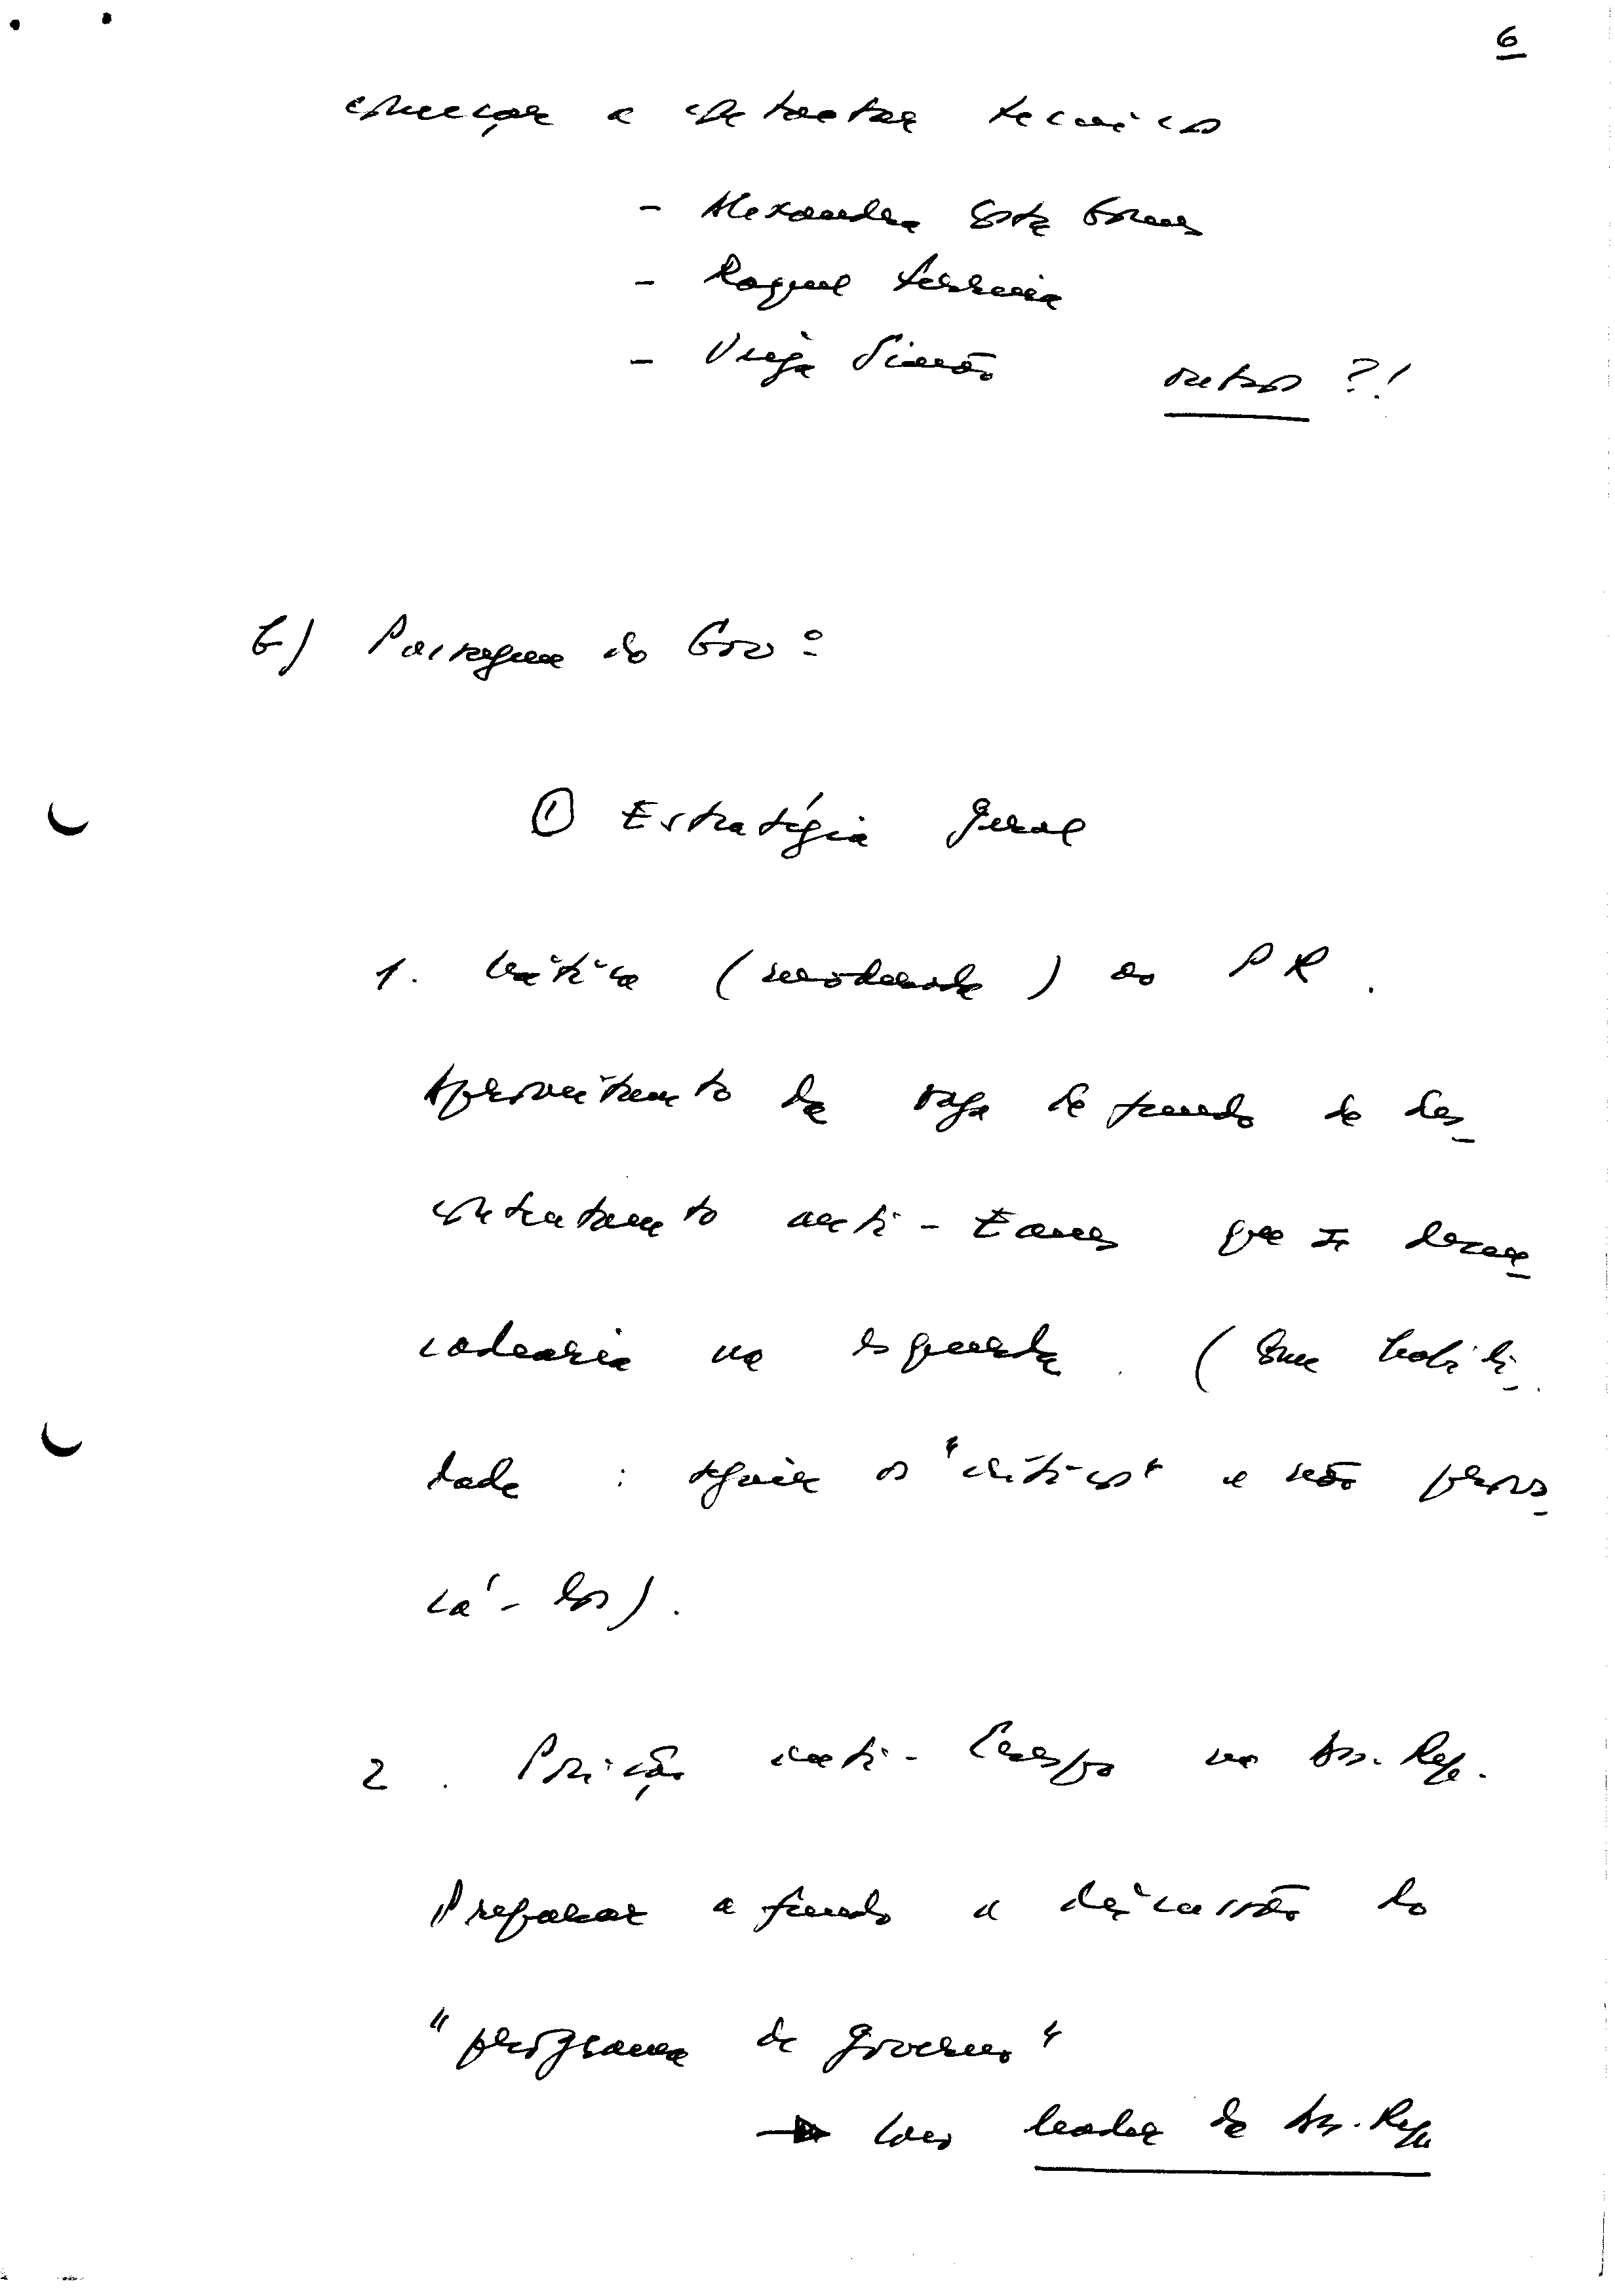 6
começar a contactar técnicos
- Alexandra Costa Gomes
- Raquel Ferreira
- Veiga Simão outros ?!
E) Passagem do Gov º
① Estratégia geral
1. Crítica (moderada) ao PR.
Aproveitamento da vaga de fundo de des_
contentamento anti-Eanes que se desen_
cadearia na esquerda. (Com habili_
dade : seguir os "críticos" e não provo_
cá-los).
2. Posição anti- na Ass. Rep.
Preparar a fundo a discussão do
"programa de governo"
→ Com leader da Ass. Rep